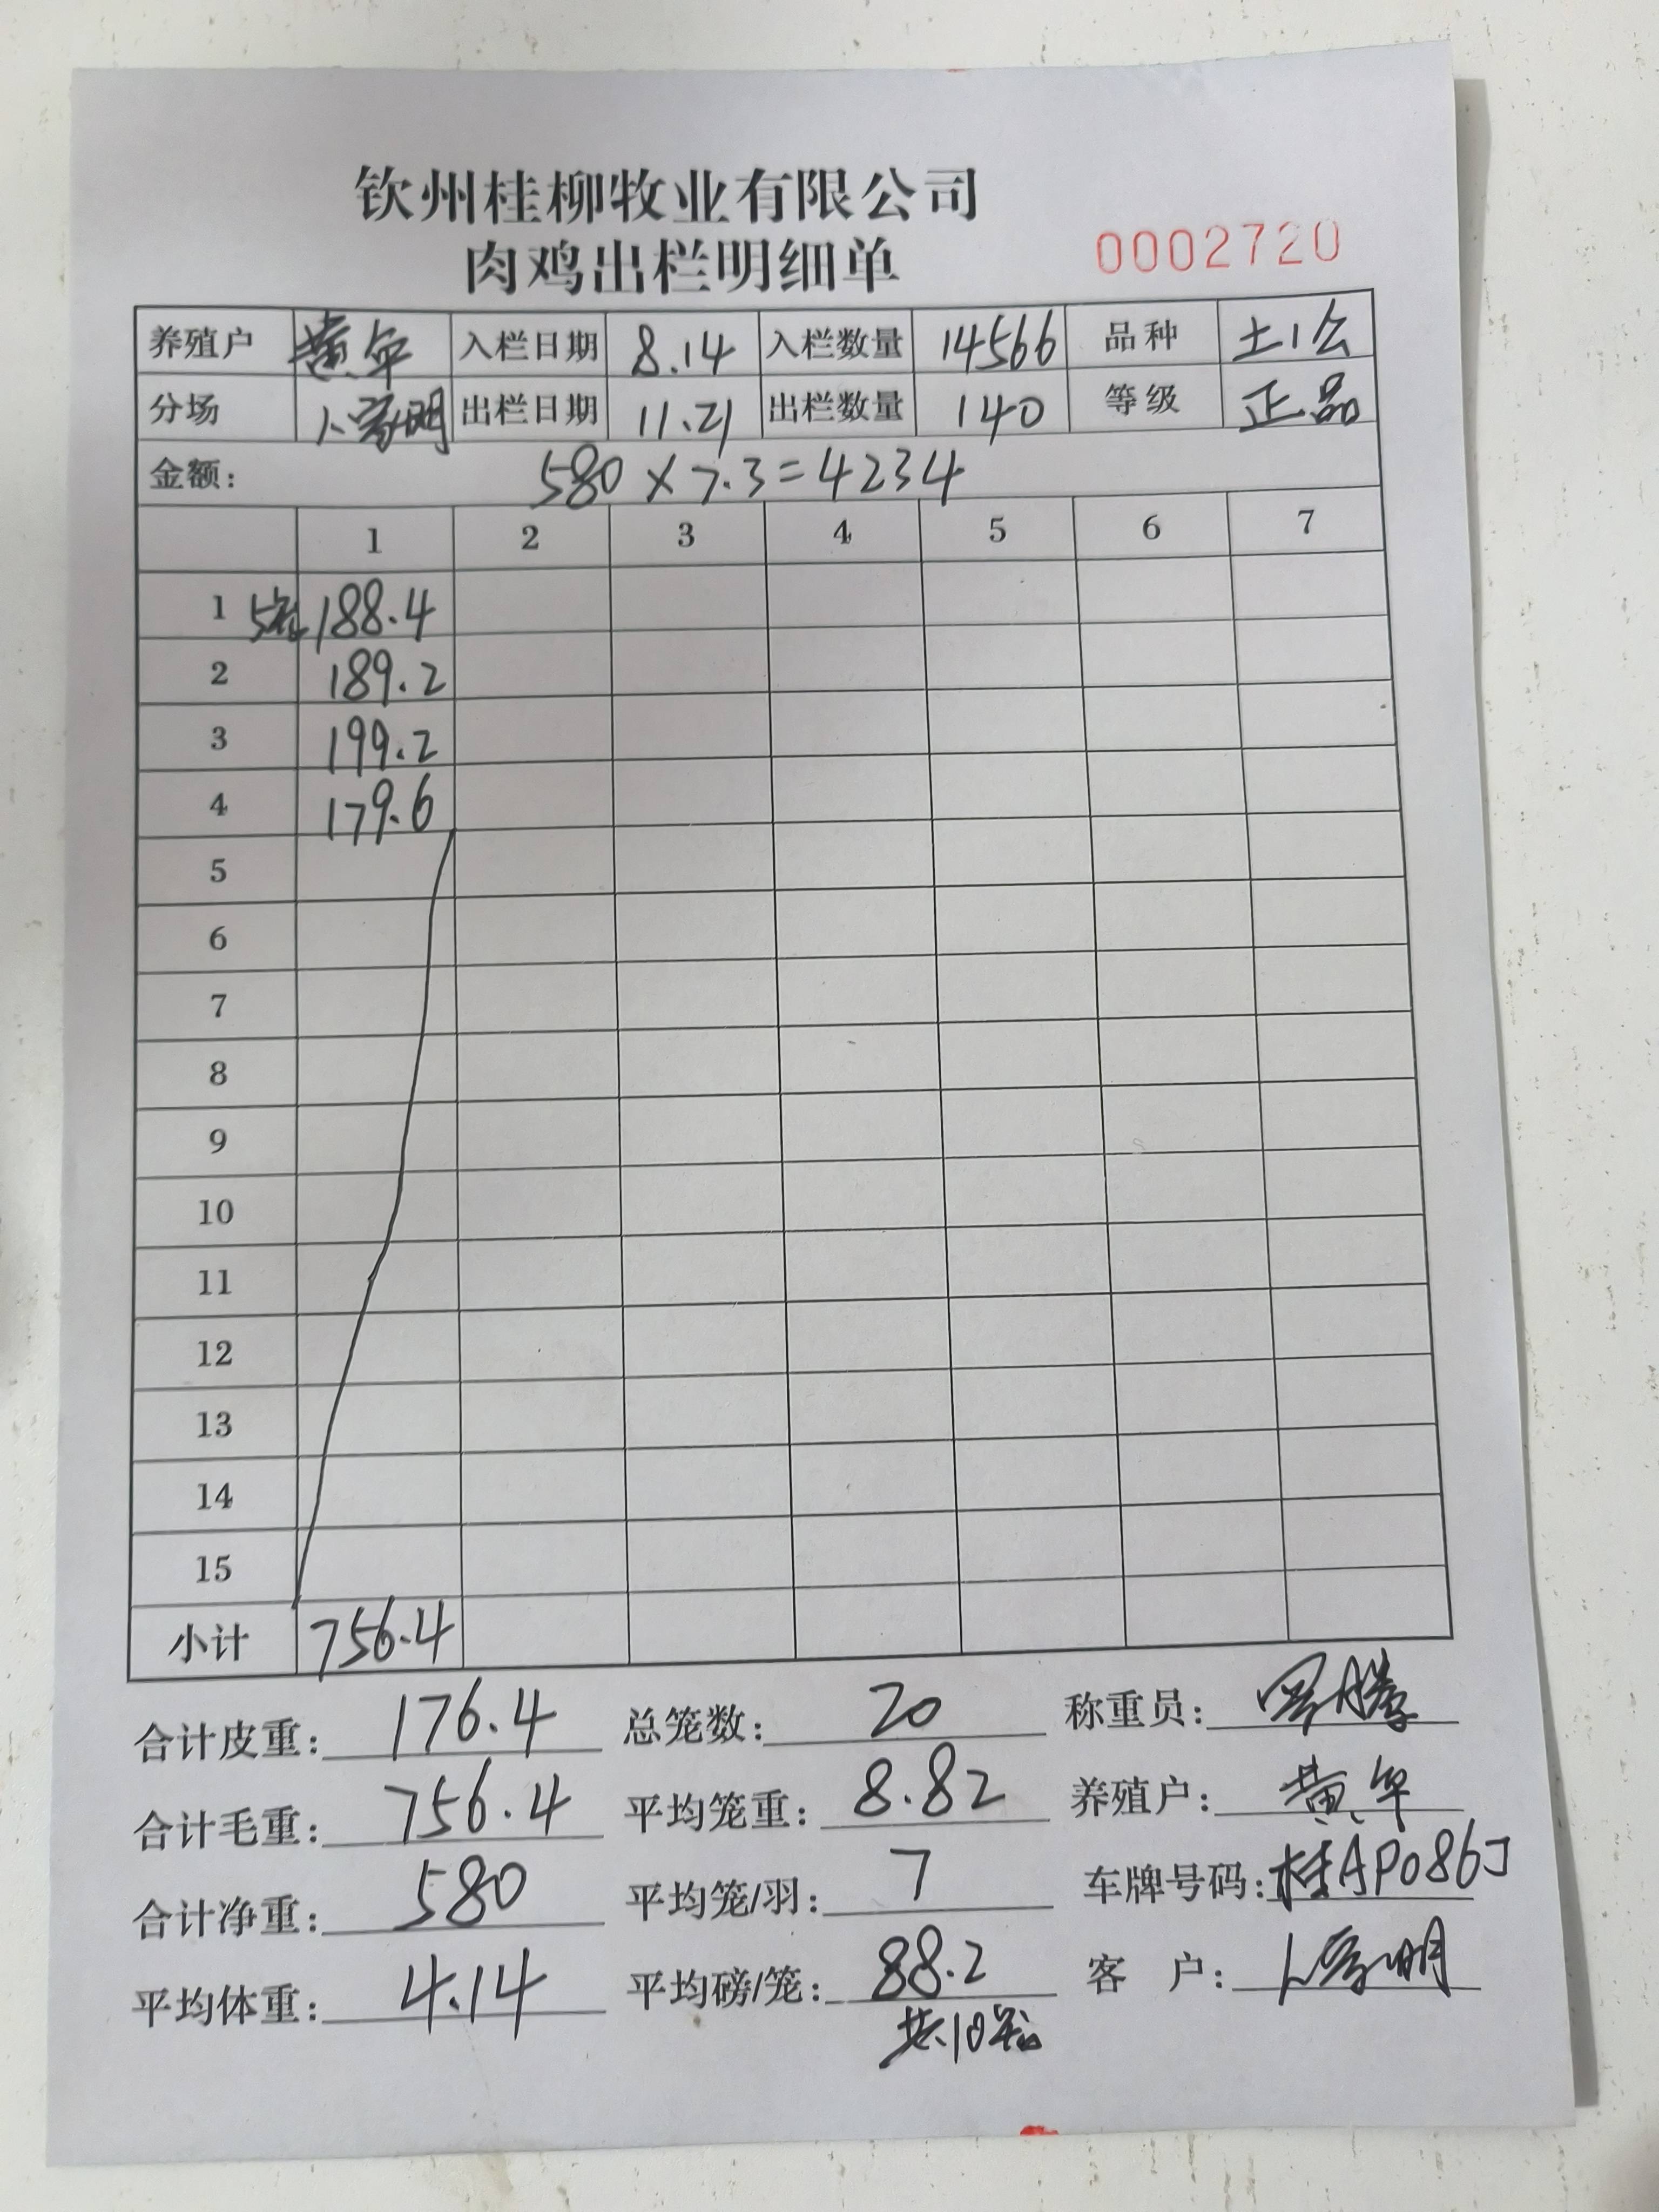 钦州桂柳牧业有限公司
肉鸡出栏明细单
0002720
养殖户 黄年 入栏日期 8.14 入栏数量 14566 品种 土1公
分场 卜家明 出栏日期 11.21 出栏数量 140 等级 正品
金额: 580×7.3=4234
1 2 3 4 5 6 7
1 188.4
2 189.2
3 199.2
4 179.6
5
6
7
8
9
10
11
12
13
14
15
小计 756.4
合计皮重: 176.4 总笼数: 20 称重员: 罗腾
合计毛重: 756.4 平均笼重: 8.82 养殖户: 黄年
合计净重: 580 平均笼/羽: 7 车牌号码: 桂AP086J
平均体重: 4.14 平均磅/笼: 88.2 客户: 卜家明
共10笼